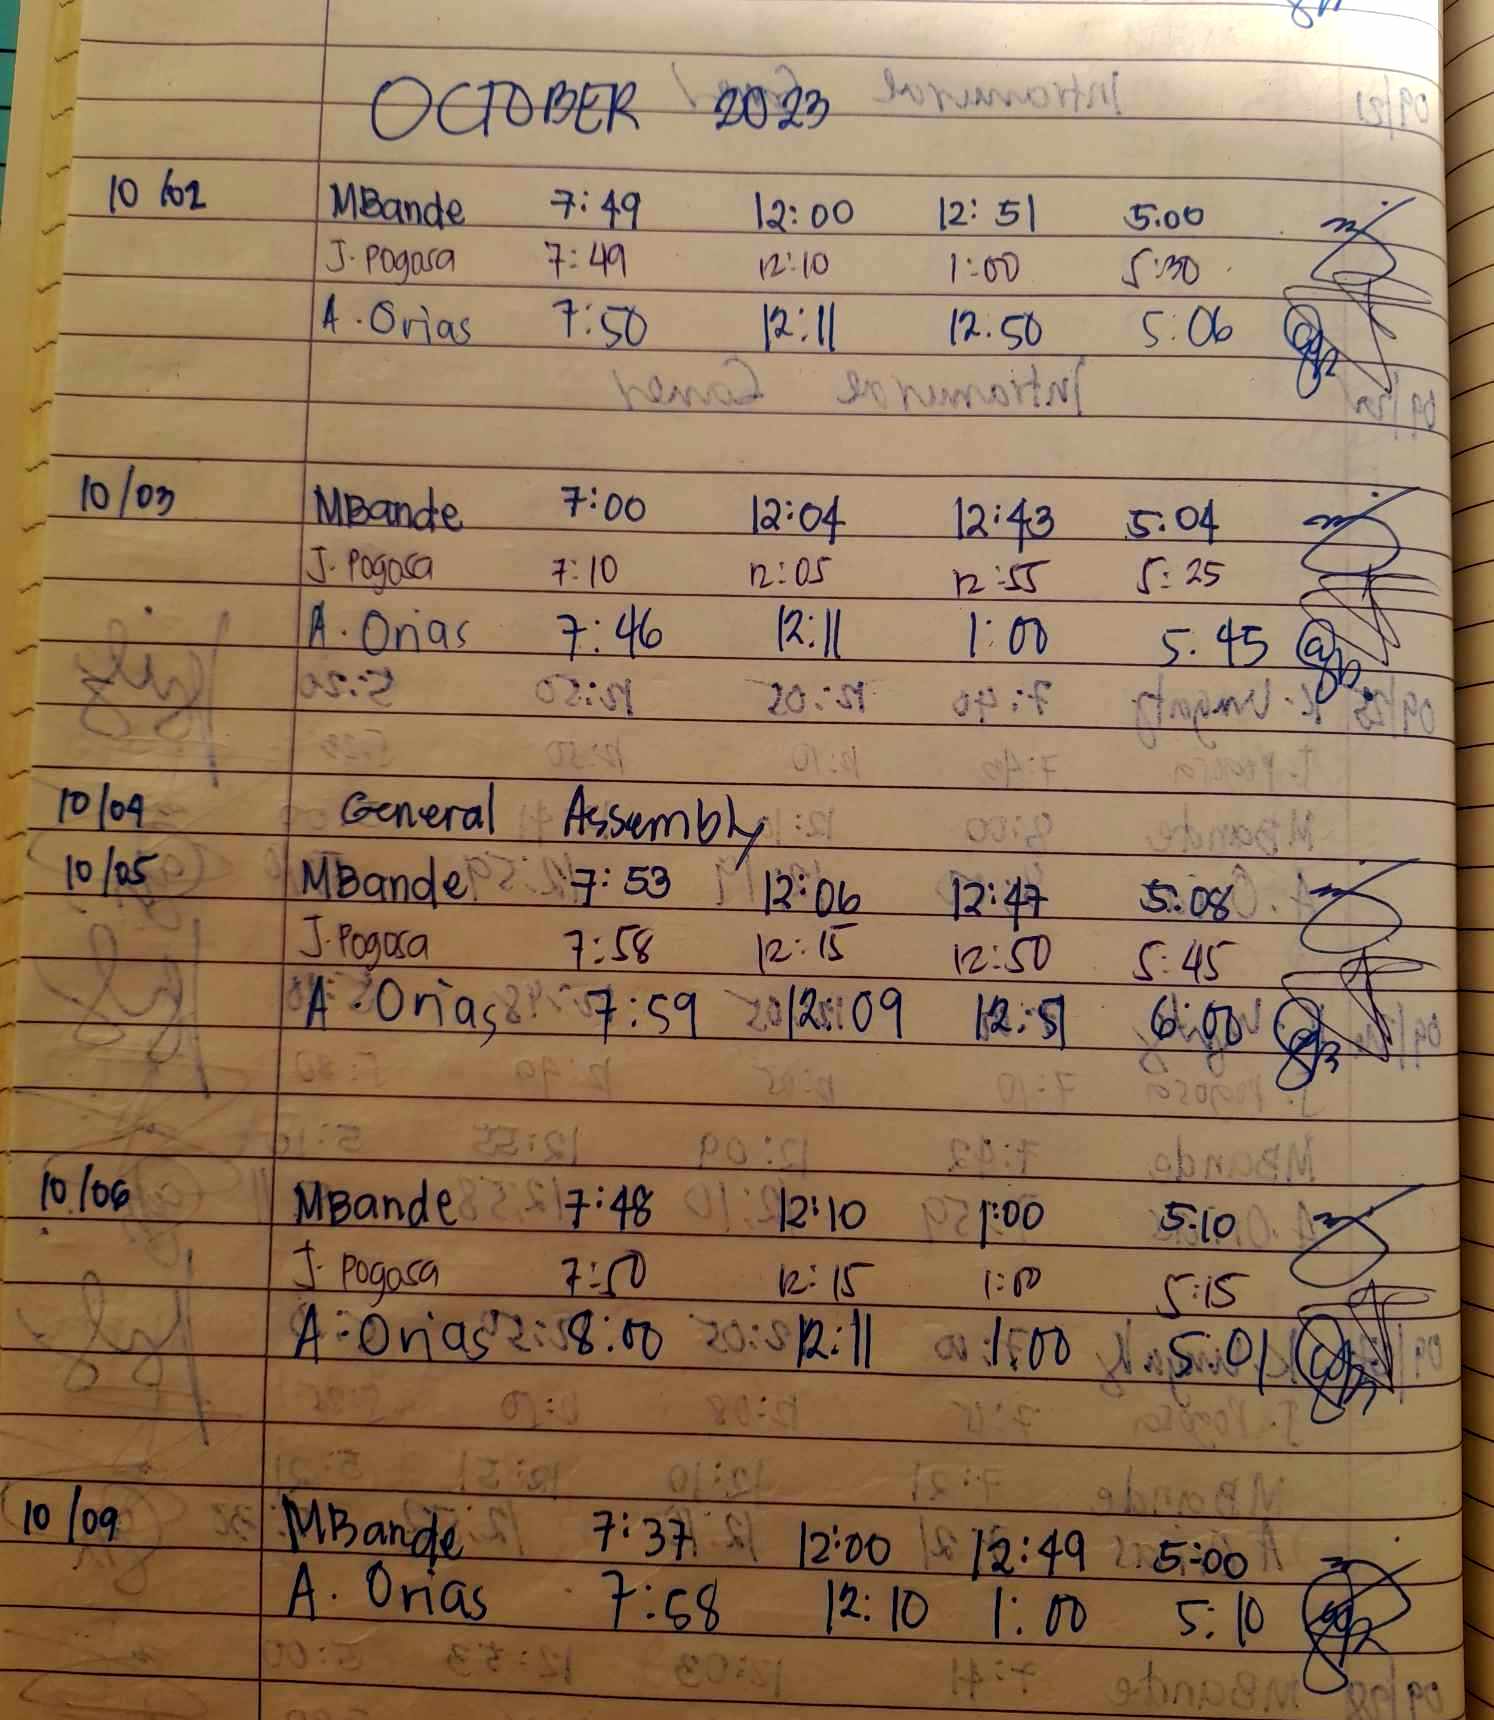 OCTOBER 2023
10/02 MBande 7:49 12:00 12:51 5:00
J. Pogosa 7:49 12:10 1:00 5:30
A. Orias 7:50 12:11 12:50 5:06
10/03 MBande 7:00 12:04 12:43 5:04
J. Pogosa 7:10 12:05 12:55 5:25
A. Orias 7:46 12:11 1:00 5:45
10/04 General Assembly
10/05 MBande 7:53 12:06 12:47 5:08
J. Pogosa 7:58 12:15 12:50 5:45
A. Orias 7:59 12:09 12:51 6:00
10/06 MBande 7:48 12:10 1:00 5:10
J. Pogosa 7:50 12:15 1:00 5:15
A. Orias 8:00 12:11 1:00 5:01
10/09 MBande 7:37 12:00 12:49 5:00
A. Orias 7:58 12:10 1:00 5:10